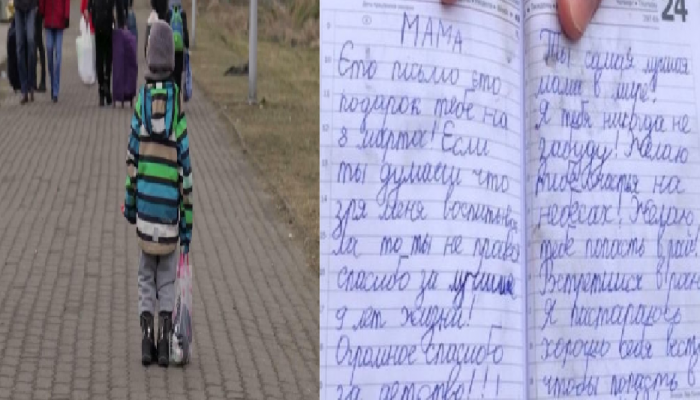 МАМА
Єто письмо єто
подарок тебе на
8 марта! Если
ты думаеш что
зря меня воспитыва
ла то ты не права
спасибо за лучшие
9 лет жизни!
Огромное спасибо
за детство!!!
24
Ты самая лучшая
мама в мире!
Я тебя никогда не
забуду! Желаю
тебе счастя на
небесах! Желаю
тебе попасть в рай!
Встретимся в
Я пастараюсь
хорошо себя вест
чтобы попасть в